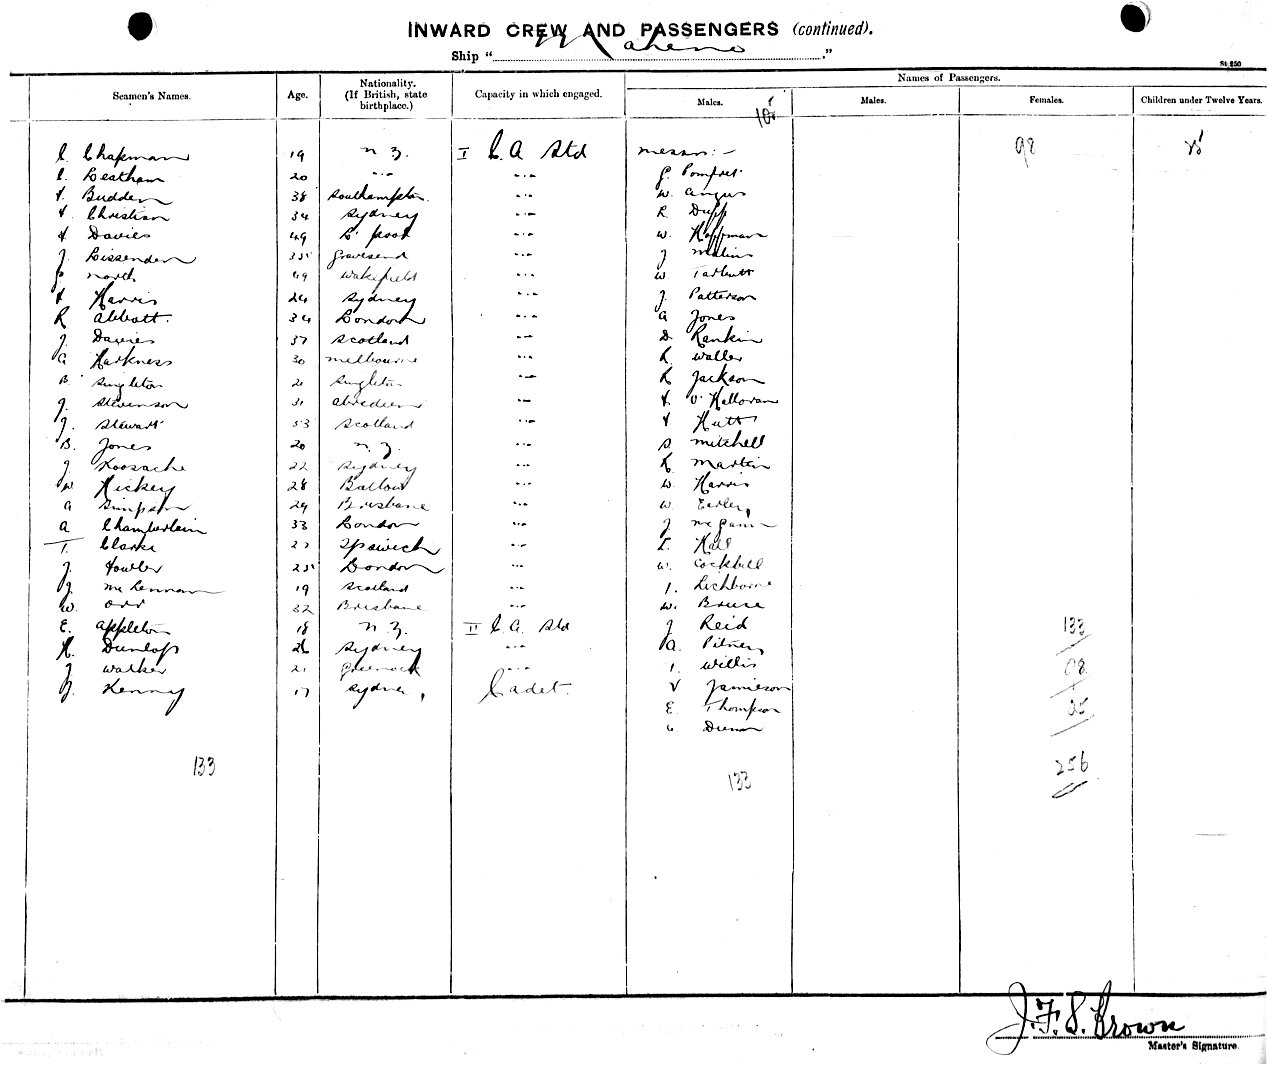 INWARD CREW AND PASSENGERS (continued).
Ship " Maheno ."
St. 250
Seamen's Names. Age. Nationality. (If British, state birthplace.) Capacity in which engaged. Names of Passengers.
Males. Males. Females. Children under Twelve Years.
105
C. Chapman 19 N Z. I C. A Std Messrs:- 98 25
C. Leatham 20 " " P. Pomfret
F. Budden 38 Southampton " W. Angus
F. Christian 34 Sydney " R Duff
F Davies 49 L' pool " W. Hoffman
J. Lissenden 35 Gravesend " J Malin
P North 49 Wakefield " W Tarbutt
F Harris 24 Sydney " J. Patterson
R Abbott. 34 London " A Jones
J. Davies 37 Scotland " D Rankin
G Harkness 30 Melbourne " R Waller
B Singleton 21 Singleton " R Jackson
J. Stevenson 31 Aberdeen " F O'Halloran
J. Stewart 53 Scotland " F Hutt
B. Jones 20 N. Z. " S Mitchell
J 22 Sydney " R Martin
W Hickey 28 " W. Harris
A Simpson 29 Brisbane " W.
A Chamberlain 33 London " J McGann
T. Clarke 27 Ipswich " T. Hall
J. Fowler 25 London " W. Cockbill
J. McLennan 19 Scotland " I.
W. Orr 32 Brisbane " W. Bruce
E. Appleton 18 N. Z. II C. A. Std J Reid 133
H. Dunlop 26 Sydney " A.
J Walker 21 Greenock " I. Willis 98
J. Kenny 17 Sydney Cadet. V Jamieson
E Thompson 25
133 133 256
J. F. S. Brown
Master's Signature.